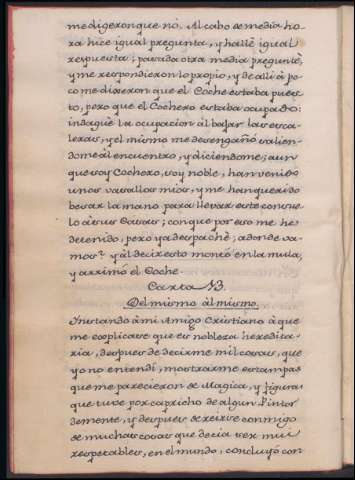 me digeron que nó. Al cabo de media ho-
ra hice igual pregunta, y hallé igual
respuesta; pasada otra media pregunté,
y me respondieron lo propio, y de alli á po-
co me dixeron que el Coche estaba pues-
to, pero que el Cochero estaba ocupado:
indagué la ocupacion al bajar las esca-
leras, y el mismo me desengañó salien-
dome al encuentro, y diciendome; aun
que soy Cochero, soy noble, han venido
unos vasallos mios, y me han querido
besar la mano para llevar este consue-
lo á sus Casas; conque por eso me he
detenido, pero ya despaché; adonde va-
mos? y al decir esto montó en la mula,
y arrimó el Coche.
Carta 13.
Del mismo al mismo.
Instando á mi Amigo Cristiano á que
me esplicase que es nobleza heredita-
ria, despues de decirme mil cosas, que
yo no entendí, mostrarme estampas
que me parecieron de Magica, y figuras
que tuve por capricho de algun Pintor
demente, y despues de reirse conmigo
de muchas cosas que decia ser mui
respetables, en el mundo, concluyó con